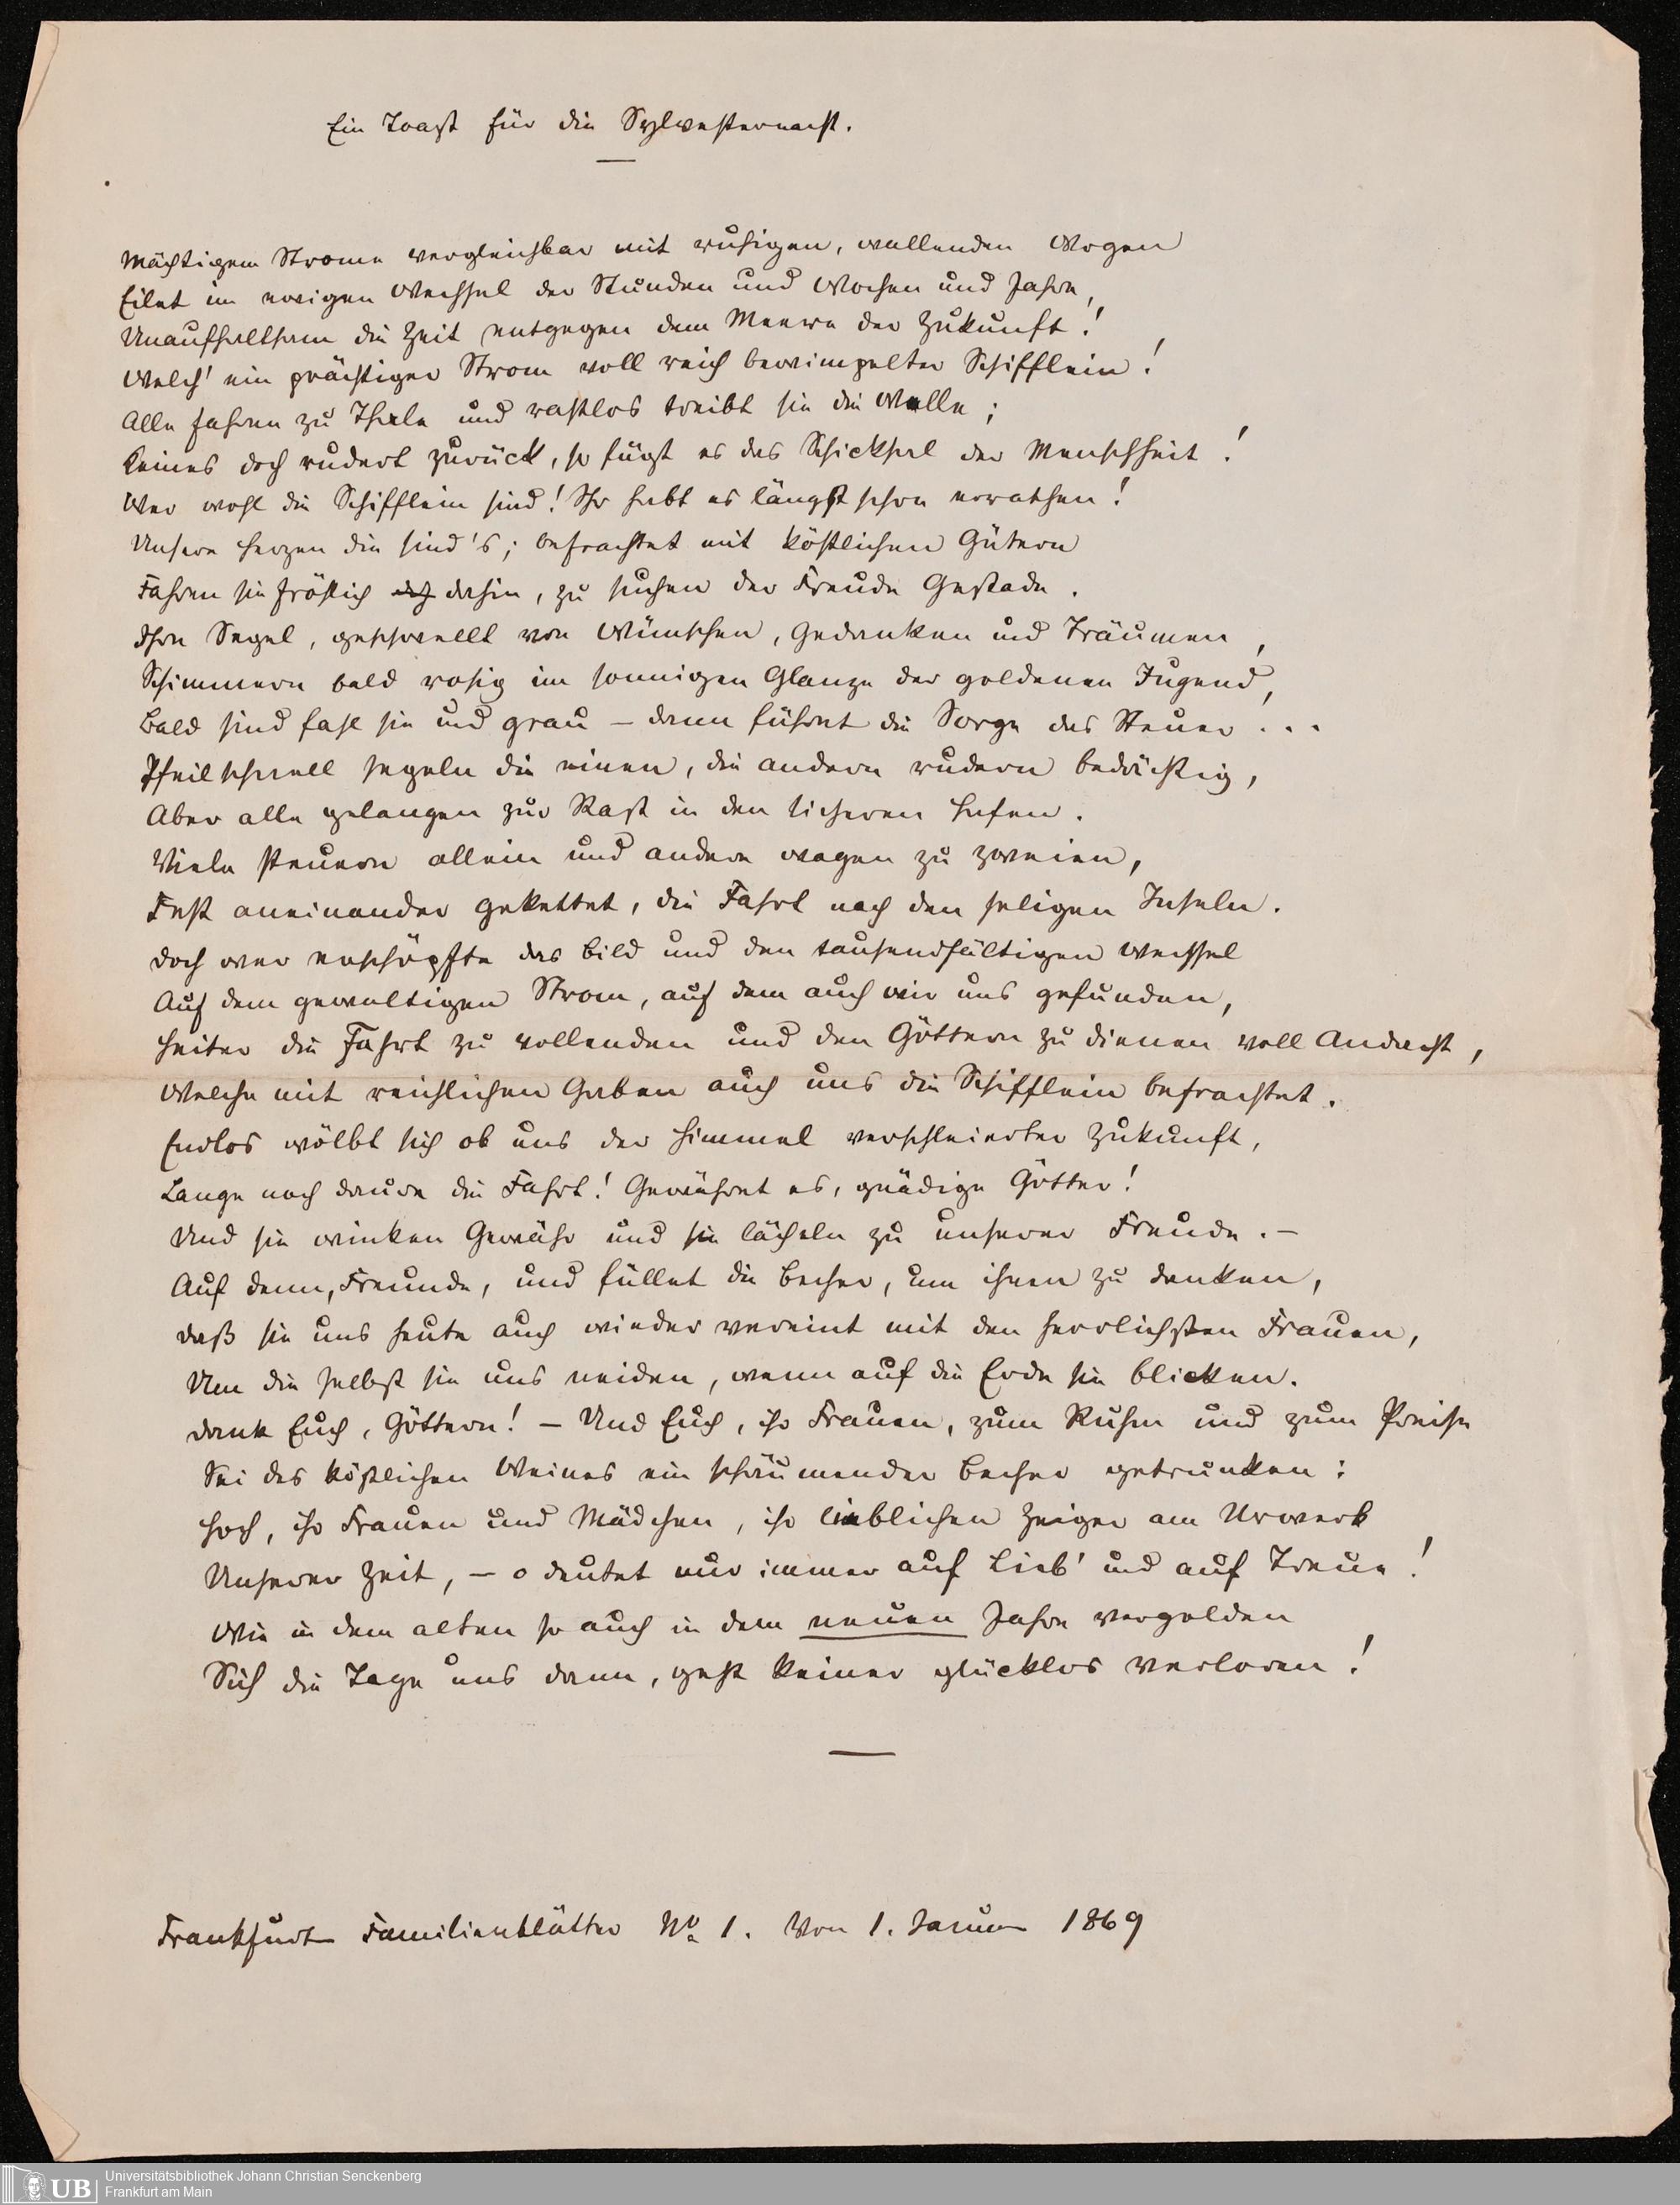 Ein Toast für die Sylvesternacht.
Mächtigem Strome vergleichbar mit ruhigen, wallenden Wogen
Eilet im ewigen Wechsel der Stunden und Wochen und Jahre,
Unaufhaltsam die Zeit entgegen dem Meere der Zukunft!
Welch' ein prächtiger Strom voll reich bewimpelter Schifflein!
Alle fahren zu Thale und rastlos treibt sie die Welle;
Keines doch rudert zurück, so fügt es das Schicksal der Menschheit!
Wer wohl die Schifflein sind! Ihr habt es längst schon errathen!
Unsere Herzen die sind's; befrachtet mit köstlichen Gütern
Fahren sie fröhlich dahin, zu suchen der Freude Gestade.
Ihre Segel, geschwellt von Wünschen, Gedanken und Träumen,
Schimmern bald rosig im sonnigen Glanze der goldenen Jugend,
Bald sind fahl sie und grau – dann führet die Sorge das Steuer...
Pfeilschnell segeln die einen, die andern rudern bedächtig,
Aber alle gelangen zur Rast in den sicheren Hafen.
Viele steuern allein und andere wagen zu zweien,
Fest aneinander gekettet, die Fahrt nach den seligen Inseln.
Doch wer erschöpfte das Bild und den tausendfältigen Wechsel
Auf dem gewaltigen Strom, auf dem auch wir uns gefunden,
Heiter die Fahrt zu vollenden und den Göttern zu dienen voll Andacht,
Welche mit reichlichen Gaben auch uns die Schifflein befrachtet.
Endlos wölbt sich ob uns der Himmel verschleierter Zukunft,
Lange noch daure die Fahrt! Gewähret es, gnädige Götter!
Und sie winken Gewähr und sie lächeln zu unserer Freude. –
Auf denn, Freunde, und füllet die Becher, um ihnen zu danken,
Daß sie uns heute auch wieder vereint mit den herrlichsten Frauen,
Um die selbst sie uns neiden, wenn auf die Erde sie blicken.
Dank Euch, Göttern! – Und Euch, ihr Frauen, zum Ruhm und zum Preise
Sei des köstlichen Weines ein schäumender Becher getrunken:
Hoch, ihr Frauen und Mädchen, ihr lieblichen Zeiger am Urwerk
Unserer Zeit, – o deutet nur immer auf Lieb' und auf Treue!
Wie in dem alten so auch in dem neuen Jahre vergolden
Sich die Tage uns dann, geht keiner glücklos verloren!
Frankfurter Familienblätter No 1. Von 1. Januar 1869
UB Universitätsbibliothek Johann Christian Senckenberg
Frankfurt am Main